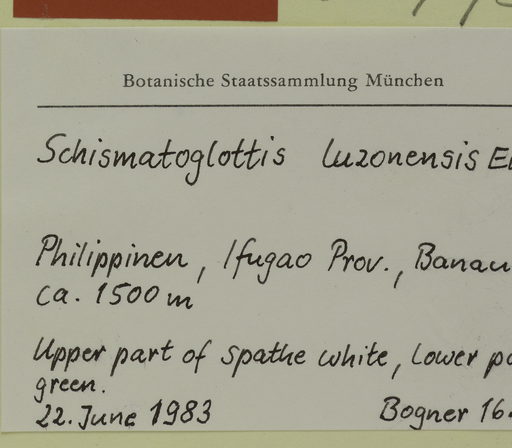 Botanische Staatssammlung München
Schismatoglottis luzonensis
Philippinen, Ifugao Prov., Banau
ca. 1500 m
Upper part of spathe white, lower
green.
22. June 1983 Bogner 16